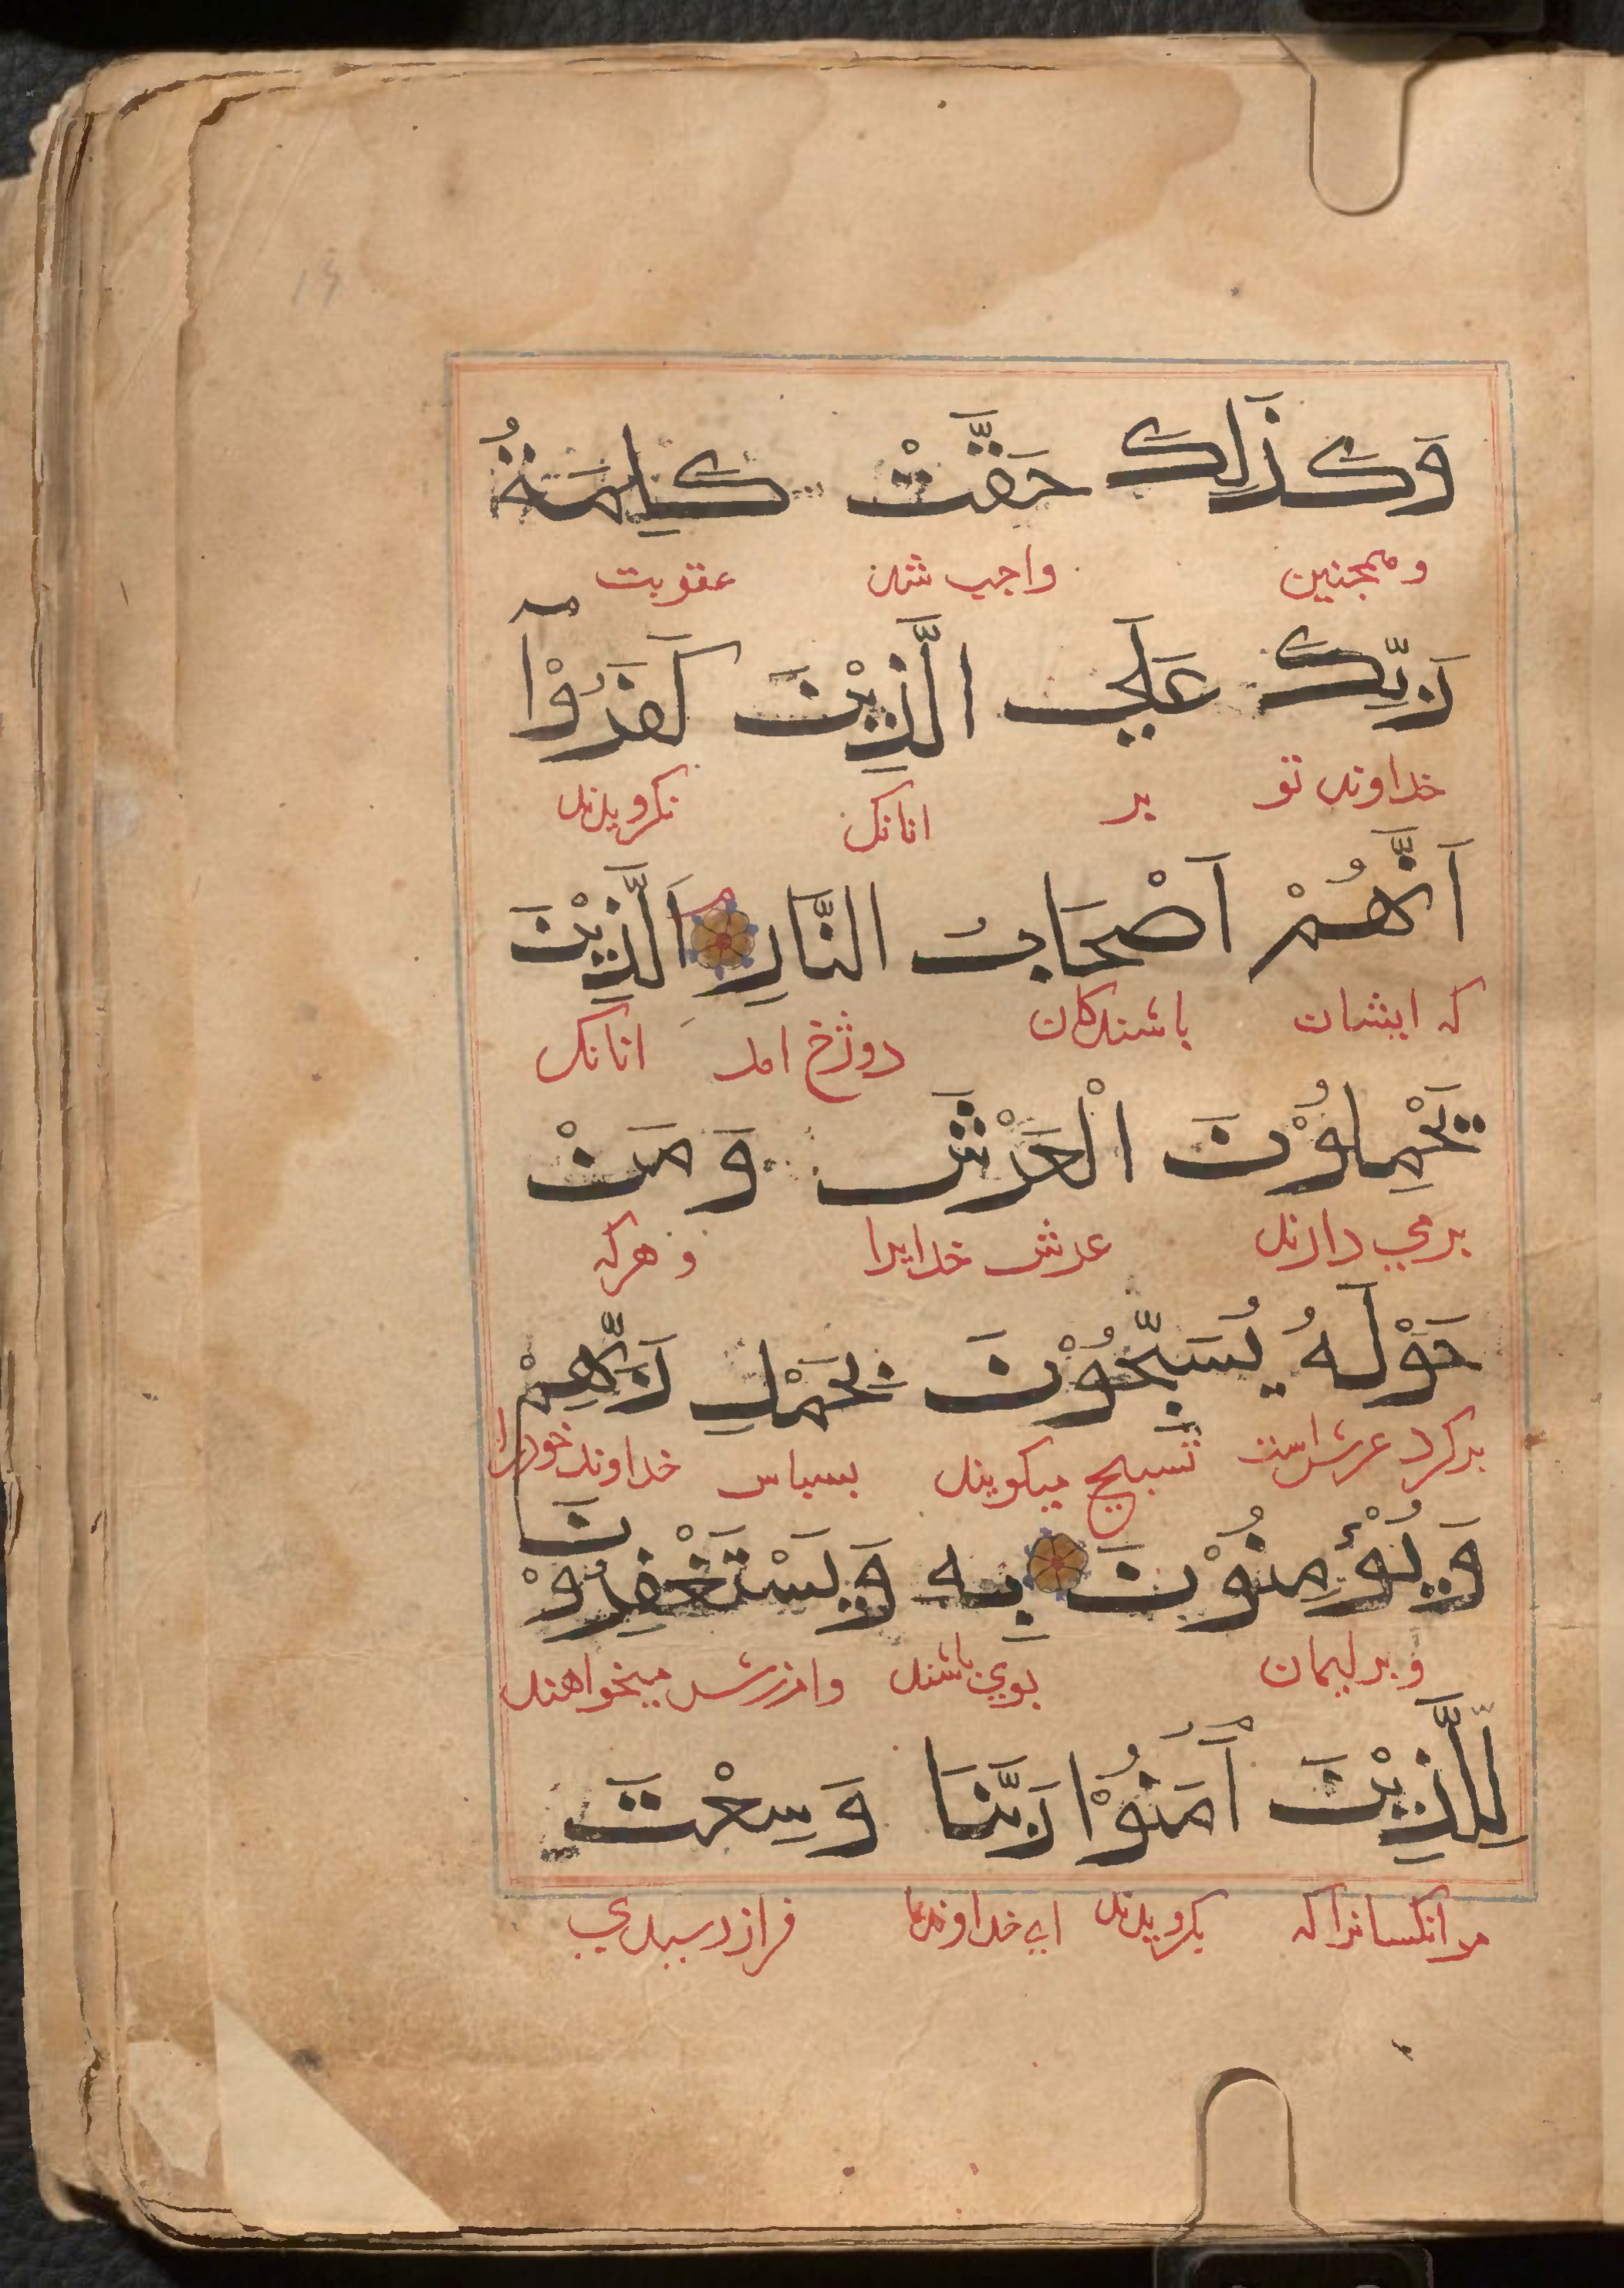 وَكَذَلِكَ حَقَّتْ كَلِمَةُ
و همچنین واجب شد عقوبت
رَبِّكَ عَلَي الَّذِيْنَ كَفَرُوْآ
خداوند تو بر انانک نکرویدند
اَنَّهُمْ اَصْحَابُ النَّارِ اَلَّذِيْنَ
که ایشان باشندکان دوزخ اند انانک
يَحْمِلُوْنَ الْعَرْشَ وَمَنْ
برمي دارند عرش خدایرا و هرکه
حَوْلَهُ يُسَبِّحُوْنَ بِحَمْدِ رَبِّهِمْ
برکرد عرش است تسبیح میکویند بسپاس خداوند خود را
وَيُؤْمِنُوْنَ بِهِ وَيَسْتَغْفِرُوْنَ
و بر ایمان بوي باشند وامرزش میخواهند
لِلَّذِيْنَ اٰمَنُوْا رَبَّنَا وَسِعْتَ
مر انکسانرا که بکرویدند اي خداوند ما فراز رسیدي